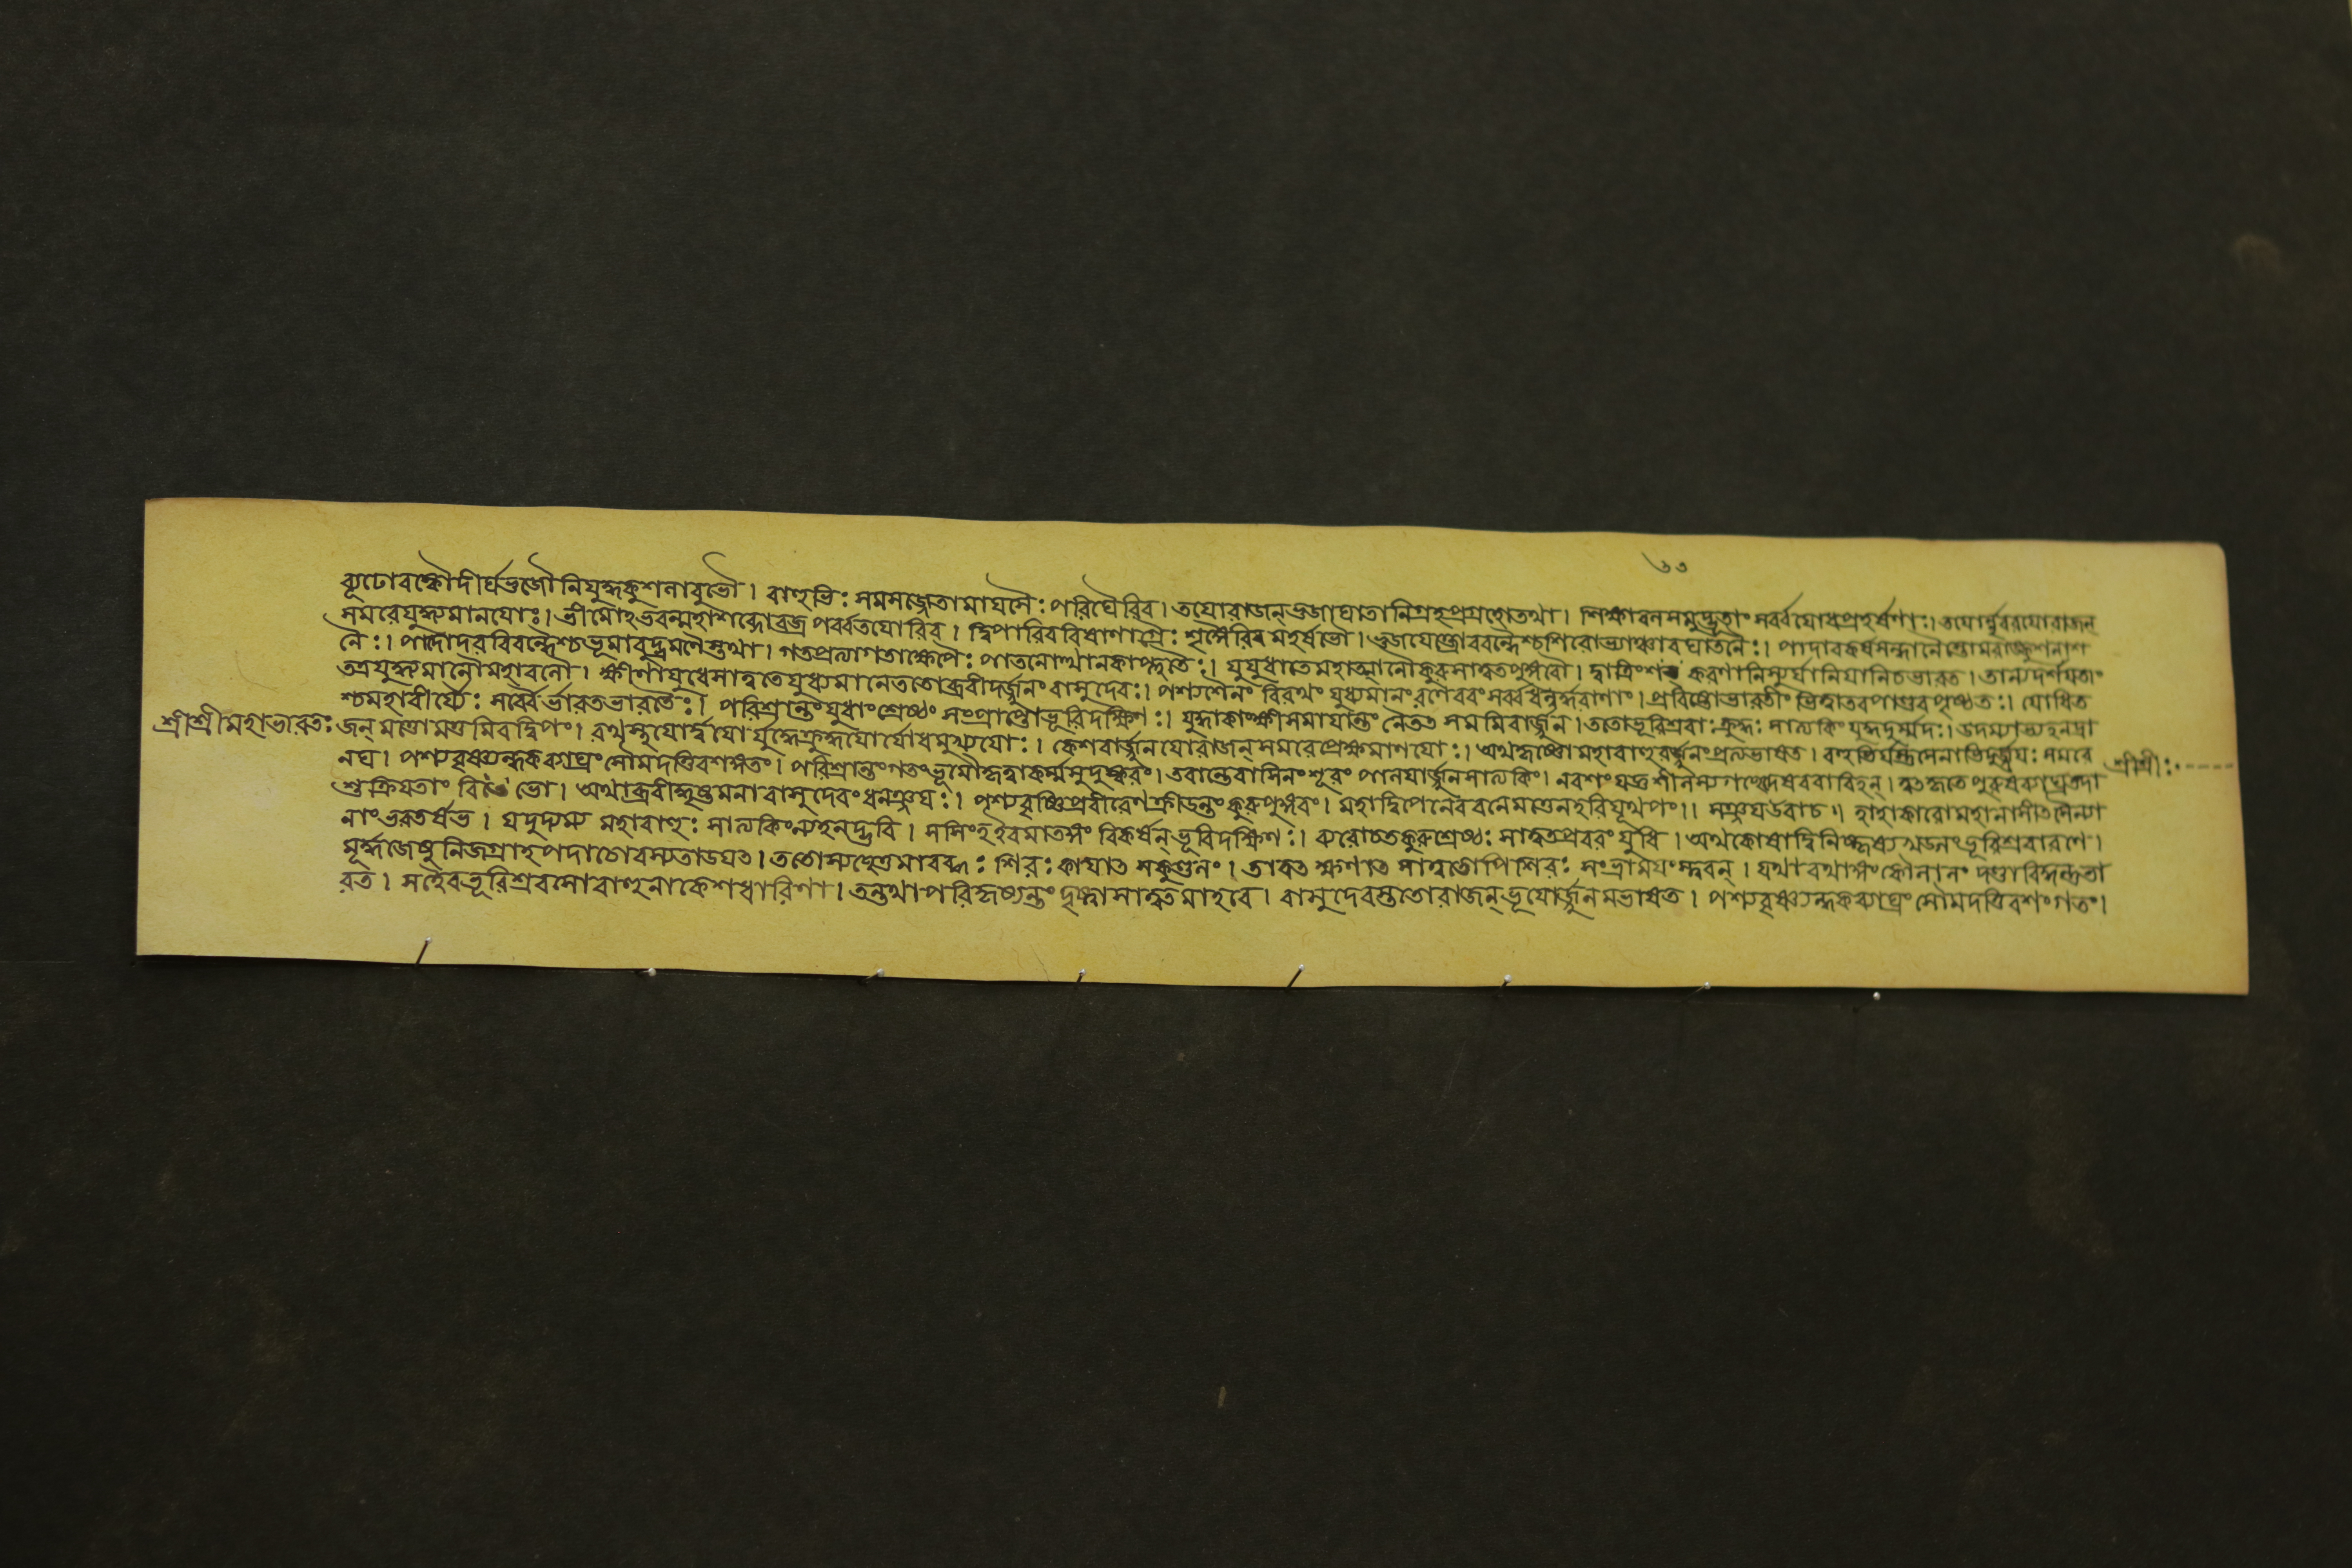 ৬৩
ব্যূঢোরস্কৌদীর্ঘভুজৌনিযুদ্ধকুশলাবুভৌ। বাহুভিঃ সমসজ্জেতামাযসৈঃ পরিঘৈরিব। তযোরাজন্ভুজাঘাতানিগ্রহপ্রগ্রহৌতথা। শিক্ষাবলসমুদ্ভূতাঃ সর্ব্বযোধপ্রহর্ষণাঃ। তযোর্নৃবরযোরাজন্
সমরেযুদ্ধ্যমানযোঃ। ভীমোহভবন্মহাশব্দোবজ্রপর্ব্বতযোরিব। দ্বিপাবিববিষাণাগ্রৈঃ শৃঙ্গৈরিব মহর্ষভৌ। ভুজযোক্ত্রাববন্ধৈশ্চশিরোভ্যাঞ্চাবঘাতনৈঃ। পাদাবকর্ষসন্দানৈস্তোমরাঙ্কুশলাশ
নৈঃ। পাদোদরবিবন্ধৈশ্চভূমাবুদ্ভ্রমণৈস্তথা। গতপ্রত্যাগতাক্ষেপৈঃ পাতনোত্থানকাপ্লুতৈঃ। যুযুধাতেমহাত্মানৌকুরুসাত্বতপুঙ্গবৌ। দ্বাত্রিংশৎ করণানিস্যুর্যানিযানিচভারত। তান্যদর্শযতাং
তত্রযুদ্ধ্যমানৌমহাবলৌ। ক্ষীণাযুধেসাত্বতেযুধ্যমানেততোব্রবীদর্জ্জুনংবাসুদেবঃ। পশ্যশৈনং বিরথং যুধ্যমানংরণেবরংসর্ব্বধনুর্দ্ধরাণাং। প্রবিষ্টোভারতীং ভিত্বাতবপাণ্ডবপৃষ্ঠতঃ। যোধিত
শ্চমহাবীর্য্যৈঃ সর্ব্বৈর্ভারতভারতৈঃ। পরিশ্রান্তংযুধাংশ্রেষ্ঠং সংপ্রাপ্তোভূরিদক্ষিণঃ। যুদ্ধাকাংক্ষীসমাযান্তং নৈতত সমমিবার্জ্জুন। ততোভূরিশ্রবাঃক্রুদ্ধঃ সাত্যকিং যুদ্ধদুর্ম্মদঃ। উদ্যম্যাভ্যহনদ্রা
শ্রীশ্রীমহাভারতঃ জন্ মত্তোমত্তমিবদ্বিপং। রথস্থযোর্দ্বযো র্যুদ্ধেক্রুদ্ধযোর্যোধমুখ্যযোঃ। কেশবার্জ্জুনযোরাজন্সমরেপ্রেক্ষমাণযোঃ। অথকৃষ্ণোমহাবাহুরর্জ্জুনংপ্রত্যভাষত। সমরে শ্রীশ্রীঃ
নঘ। পশ্যবৃষ্ণ্যন্ধকব্যাঘ্রংসৌমদত্তিবশঙ্গতং। পরিশ্রান্তংগতংভূমৌকৃত্বাকর্ম্মসুদুষ্করং। তবান্তেবাসিনংশূরং পালযার্জ্জুনসাত্যকিং।
শুক্রিযতাং বিভো। অথাব্রবীদ্ধৃষ্টমনাবাসুদেবংধনঞ্জযঃ। পশ্যবৃষ্ণিপ্রবীরেণক্রীডন্তংকুরুপুঙ্গবং। মহাদ্বিপেনেববনেমত্তেনহরিযূথপং।। সঞ্জযউবাচ।। হাহাকারোমহানাসীতসৈন্যা
নাংভরতর্ষভ। যদুদ্যম্য মহাবাহুঃ সাত্যকিংন্যহনদ্ভুবি। সসিংহইবমাতঙ্গং বিকর্ষন্ভূরিদক্ষিণঃ। ব্যরোচতকুরুশ্রেষ্ঠঃ সাত্বতপ্রবরংযুধি। অথকোষাদ্বিনিষ্কৃষ্য খড্গংভূরিশ্রবারণে।
মূর্দ্ধজেষুনিজগ্রাহপদাচোরস্যতাডযত। ততোস্যছেত্তুমারব্ধঃ শিরঃকাযাত সকুণ্ডলং। তাবত ক্ষণাত সাত্বতোপিশিরঃ সংভ্রামযংস্ত্বরন্। যথারথাঙ্গংকৌলালং দণ্ডাবিদ্ধন্তুভা
রত। সহৈবভূরিশ্রবসোবাহুনাকেশধারিণা। তন্তথাপরিকৃষ্যন্তং দৃষ্ট্বাসাত্বতমাহবে। বাসুদেবস্ততোরাজন্ভূযোর্জ্জুনমভাষত। পশ্যবৃষ্ণ্যন্ধকব্যাঘ্রংসৌমদত্তিবশংগতং।